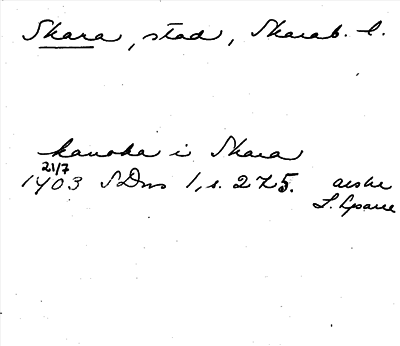 Skara, stad, Skarab. l.
kanoka i Skara
21/7
1403 SDns 1, s. 275. aeske